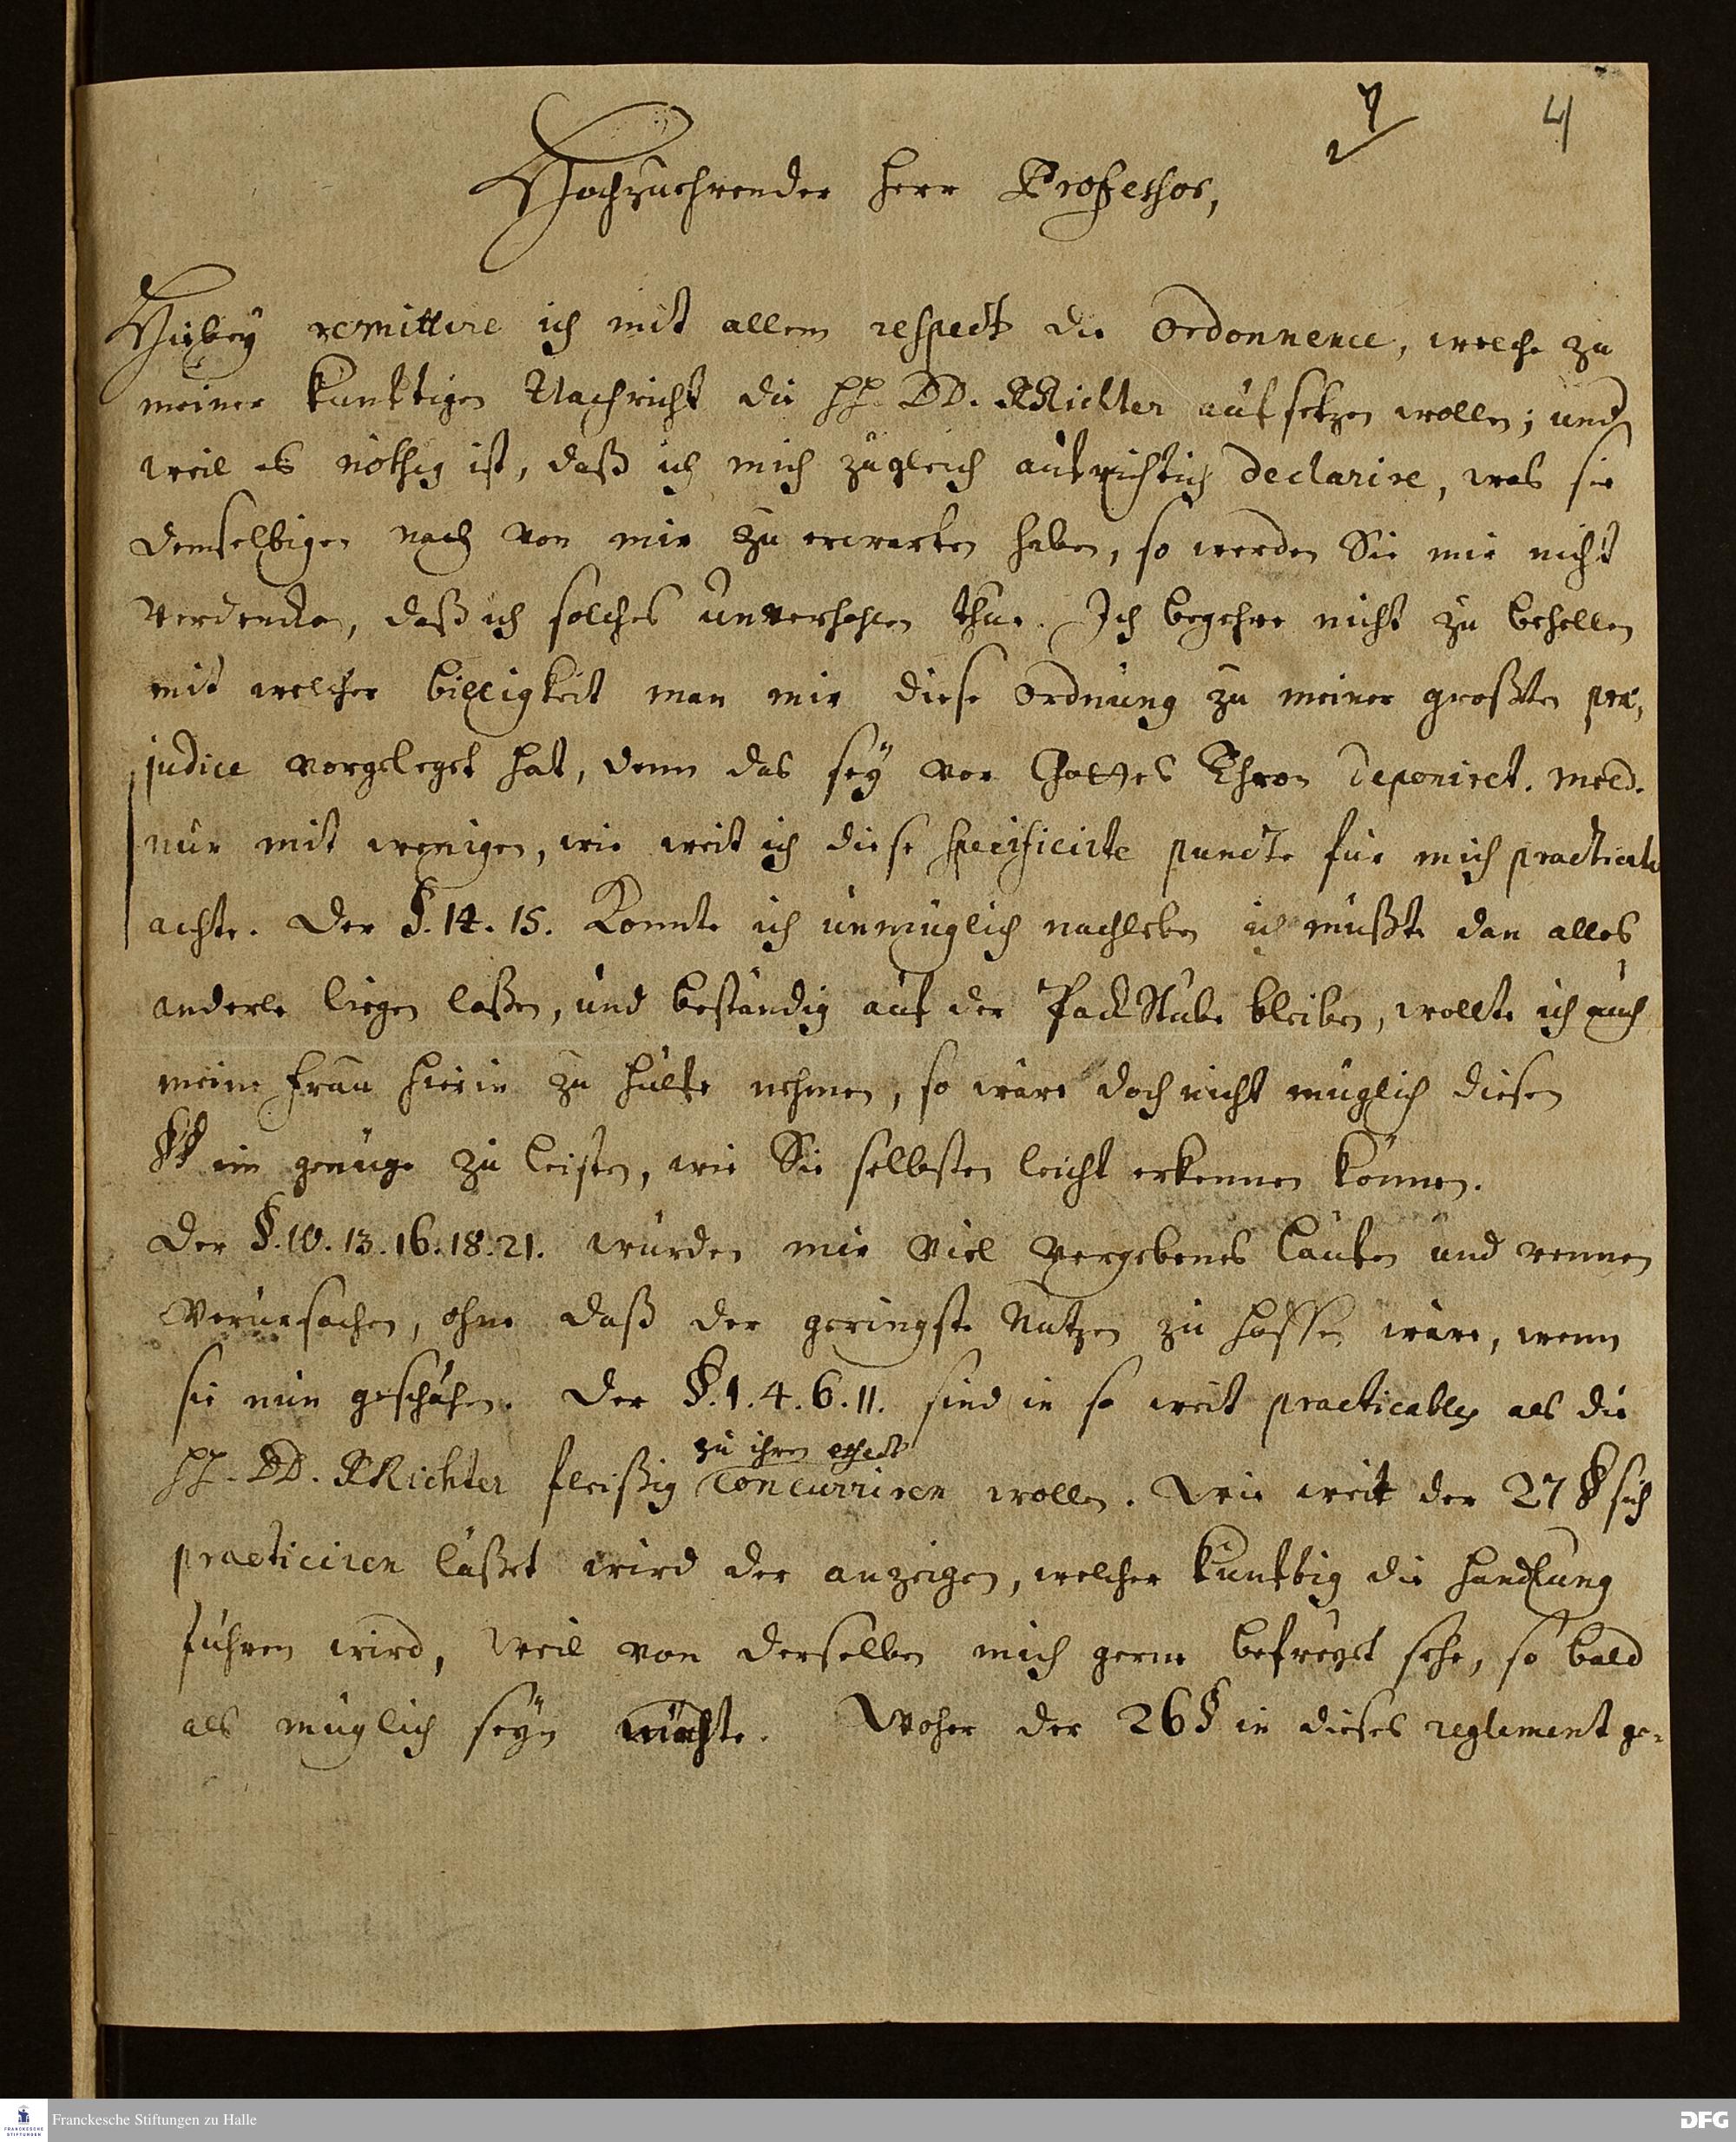 7
4
Hochzuehrender Herr Professor,
Hiebey remittire ich mit allem respect die Ordonnence, welche zu
meiner kunftigen Nachricht die HH. DD. RRichter aufsetzen wollen; und
weil es nöthig ist, daß ich mich zugleich aufrichtig declarire, was sie
demselbigen nach von mir zu erwarten haben, so werden Sie mir nicht
verdencken, daß ich solches unverhohlen thue. Ich begehre nicht zu
mit welcher billigkeit man mir diese Ordnung zu meiner großten præ,
judice vorgeleget hat, denn das sey vor Gottes Thron deponiret. meld.
nur mit wenigen, wie weit ich diese specificirte puncte für mich practicabl
achte. Der §. 14. 15. Konnte ich unmüglich nachleben ich müßte dan alles
anderle liegen laßen, und beständig auf der PackStube bleiben, wollte ich auch
meine Frau hierin zu hülfe nehmen, so wäre doch nicht müglich diesen
§§ ein genüge zu leisten, wie Sie selbsten leicht erkennen können.
Der §. 10. 13. 16. 18. 21. würden mir viel vergebenes laufen und rennen
verursachen, ohne daß der geringste Nutzen zu hoffen wäre, wenn
sie nun geschähen. Der §. 1. 4. 6. 11. sind in so weit practicable, als die
zu ihren effect
HH. DD. RRichter fleißig concurriren wollen. Wie weit der 27 § sich
practiciren läßet wird der anzeigen, welcher kunftig die Handlung
führen wird, weil von derselben mich gerne befreyet sehe, so bald
als müglich seyn möchte. Woher der 26 § in dieses reglement ge-
Franckesche Stiftungen zu Halle
FRANCKESCHE STIFTUNGEN
DFG